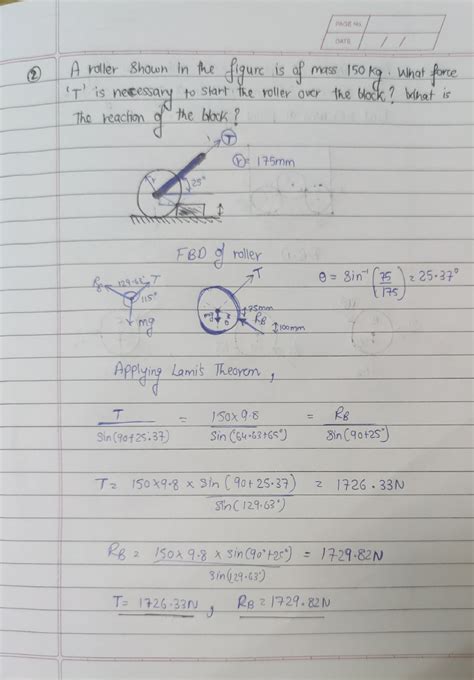 PAGE NO.
DATE
② A roller shown in the figure is of mass 150 kg. What force
'T' is necessary to start the roller over the block? What is
The reaction of the block?
T
r = 175mm
r
25°
FBD of roller
R_B 129.63° T
115°
mg
T
75mm
R_B
100mm
mg
θ = Sin⁻¹ (75/175) = 25.37°
Applying Lami's Theorem,
T/Sin(90+25.37) = 150×9.8/Sin(64.63+65°) = R_B/Sin(90+25°)
T = 150×9.8 × Sin(90+25.37)/Sin(129.63°) = 1726.33N
R_B = 150×9.8 × Sin(90°+25°)/Sin(129.63°) = 1729.82N
T = 1726.33N , R_B = 1729.82N